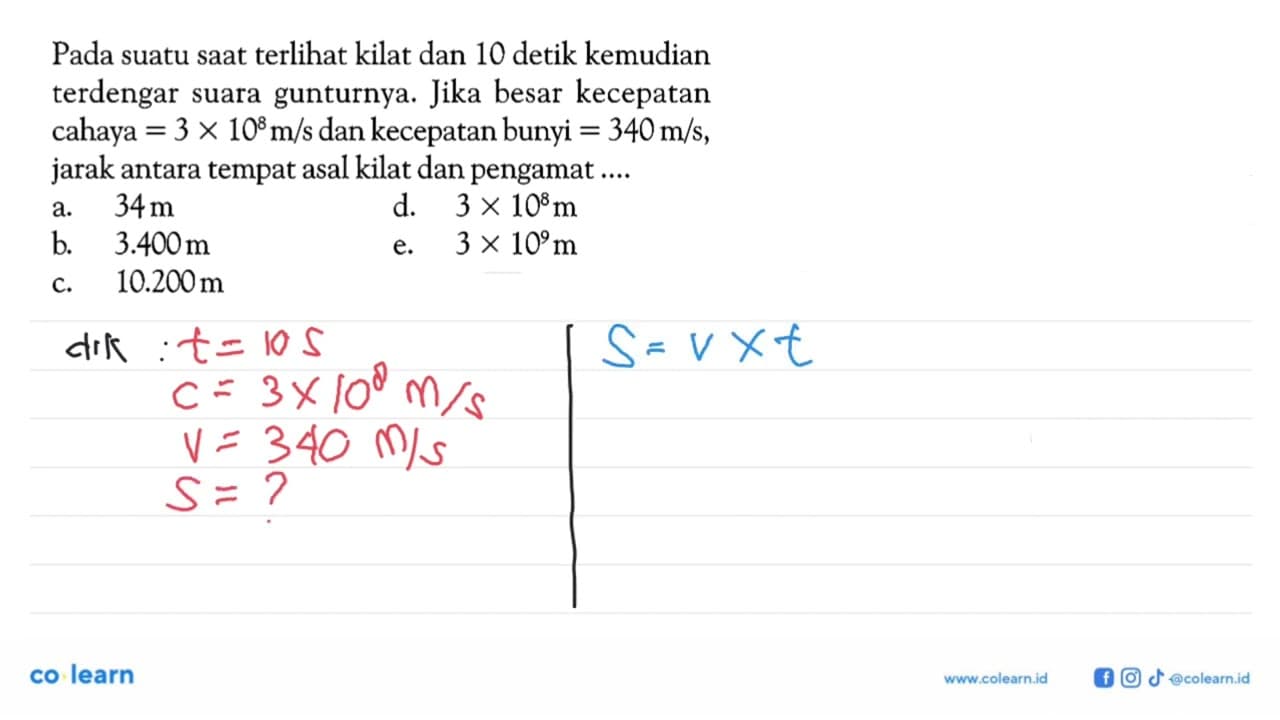 Pada suatu saat terlihat kilat dan 10 detik kemudian
terdengar suara gunturnya. Jika besar kecepatan
cahaya = 3 × 10⁸ m/s dan kecepatan bunyi = 340 m/s,
jarak antara tempat asal kilat dan pengamat ....
a. 34 m d. 3 × 10⁸ m
b. 3.400 m e. 3 × 10⁹ m
c. 10.200 m
dik : t = 10 s
c = 3 × 10⁸ m/s
v = 340 m/s
S = ?
S = v × t
co learn
www.colearn.id @colearn.id